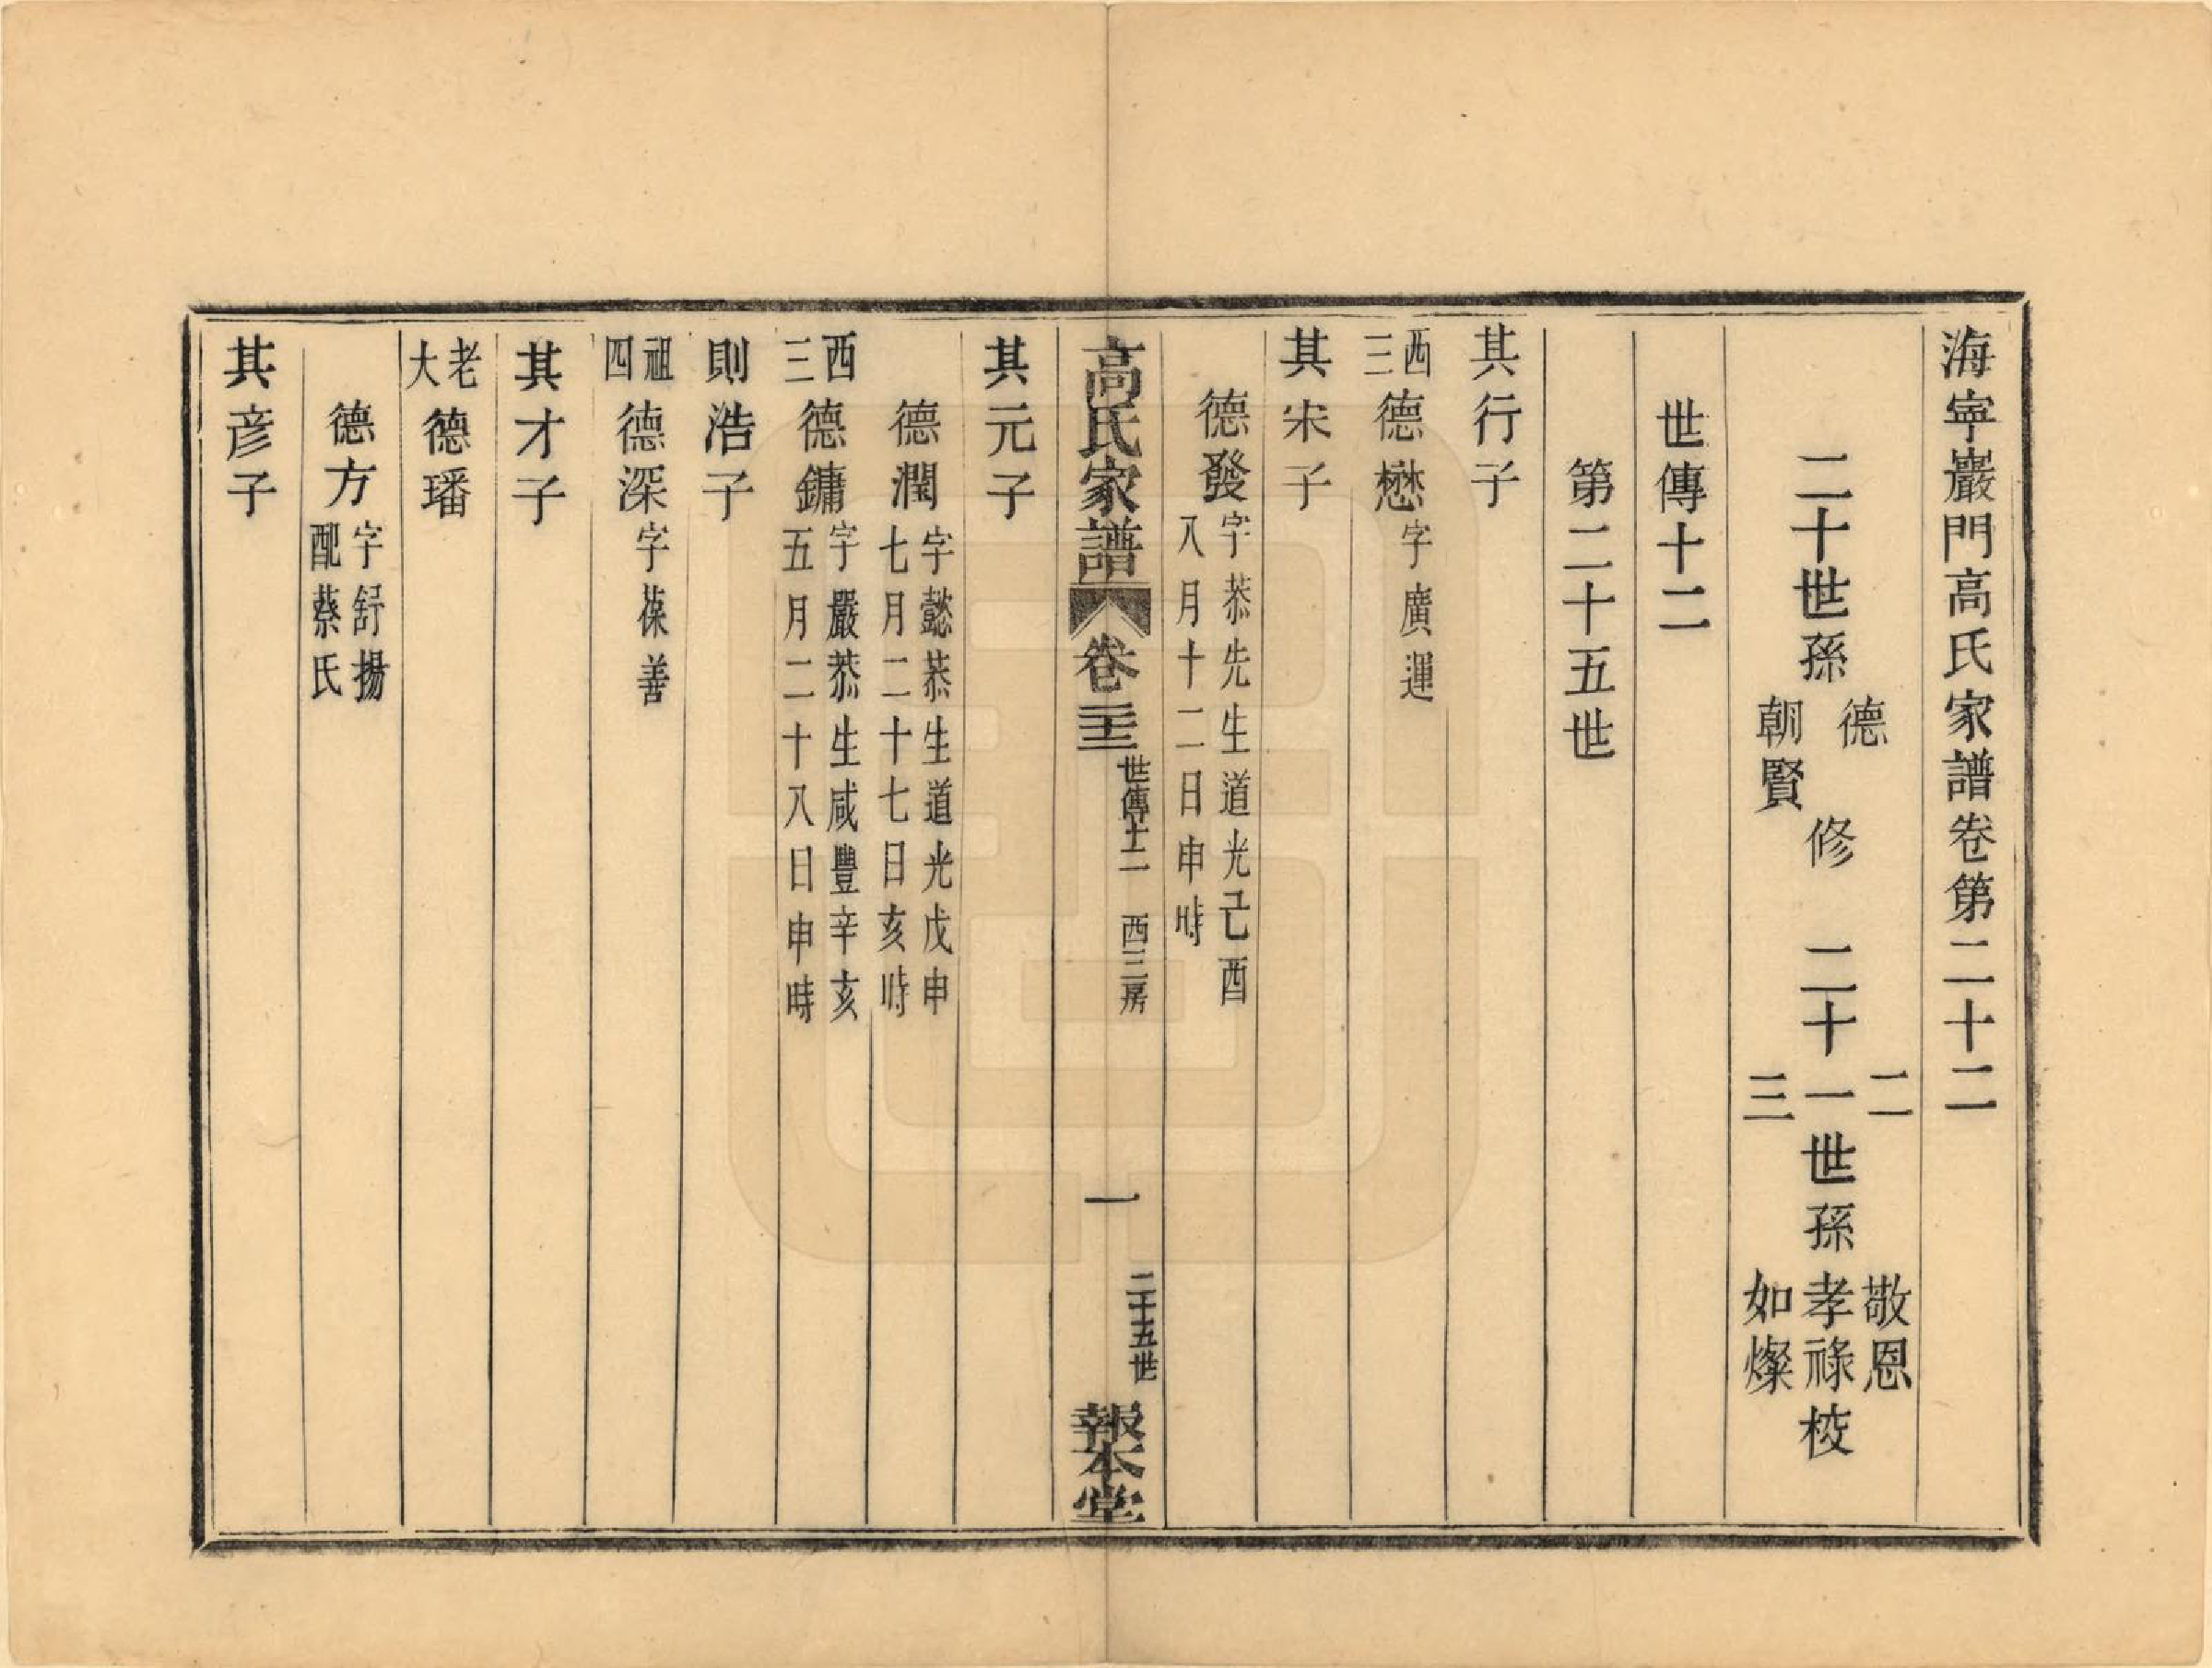 海寧巖門高氏家譜卷第二十二
二十世孫德朝賢修 二十二一三世孫敬恩孝祿如燦校
世傳十二
第二十五世
其行子
西三德懋字廣運
其宋子
德發字菾先生道光己酉
八月十二日申時
高氏家譜 卷二十二 世傳十二 西三房 一 二十五世 報本堂
其元子
德潤字懿菾生道光戊申
七月二十七日亥時
西三德鏞字嚴菾生咸豐辛亥
五月二十八日申時
則浩子
祖四德深字葆善
其才子
老大德璠
德方字舒揚
配蔡氏
其彦子